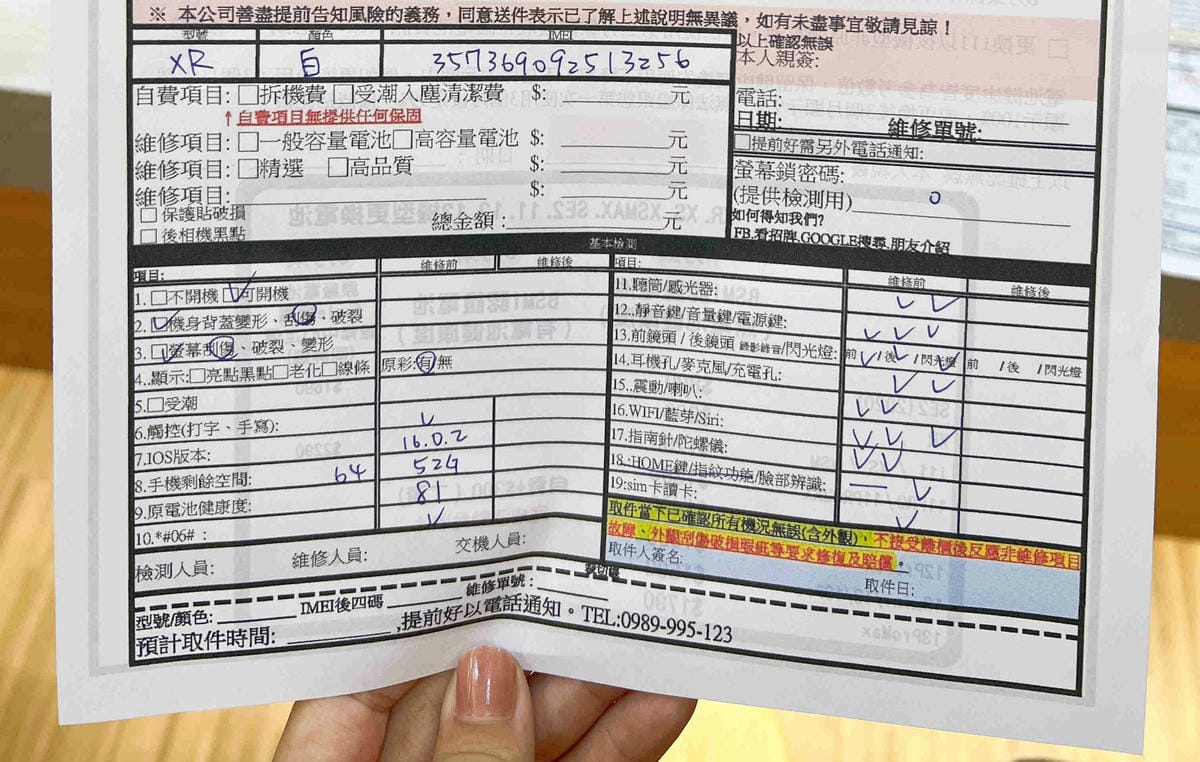 ※ 本公司善盡提前告知風險的義務，同意送件表示已了解上述說明無異議，如有未盡事宜敬請見諒！
型號 顏色 IMEI
XR 白 357369092513256
以上確認無誤
本人親簽:
電話:
日期: 維修單號:
提前好需另外電話通知:
螢幕鎖密碼:
(提供檢測用) 0
如何得知我們?
FB.看招牌.GOOGLE搜尋.朋友介紹
自費項目: □拆機費 □受潮入塵清潔費 $: 元
↑自費項目無提供任何保固
維修項目: □一般容量電池□高容量電池 $: 元
維修項目: □精選 □高品質 $: 元
維修項目: $: 元
□ 保護貼破損
□ 後相機黑點 總金額: 元
基本檢測
項目: 維修前 維修後
1. □不開機 □可開機 ✓
2. □機身背蓋變形、刮傷、破裂 ✓
3. □螢幕刮傷、破裂、變形 ✓
4.顯示:□亮點黑點□老化□線條 原彩:有 無
5.□受潮
6.觸控(打字、手寫): ✓
7.IOS版本: 16.0.2
8.手機剩餘空間: 64 52G
9.原電池健康度: 81
10.*#06#: ✓
項目: 維修前 維修後
11.聽筒/感光器: ✓ ✓
12..靜音鍵/音量鍵/電源鍵: ✓ ✓ ✓
13.前鏡頭 / 後鏡頭 錄影錄音/閃光燈: 前 / 後 / 閃光燈 前 / 後 / 閃光燈
14.耳機孔/麥克風/充電孔: ✓ ✓
15..震動/喇叭: ✓ ✓
16.WIFI/藍芽/Siri: ✓ ✓ ✓
17.指南針/陀螺儀: ✓ ✓
18.·HOME鍵/指紋功能/臉部辨識: — ✓
19:sim卡讀卡: ✓
取件當下已確認所有機況無誤(含外觀)，不接受離櫃後反應非維修項目
故障、外觀刮傷破損瑕疵等要求修復及賠償。
檢測人員: 維修人員: 交機人員:
取件人簽名: 取件日:
型號/顏色: IMEI後四碼 維修單號:
預計取件時間: ,提前好以電話通知。TEL:0989-995-123